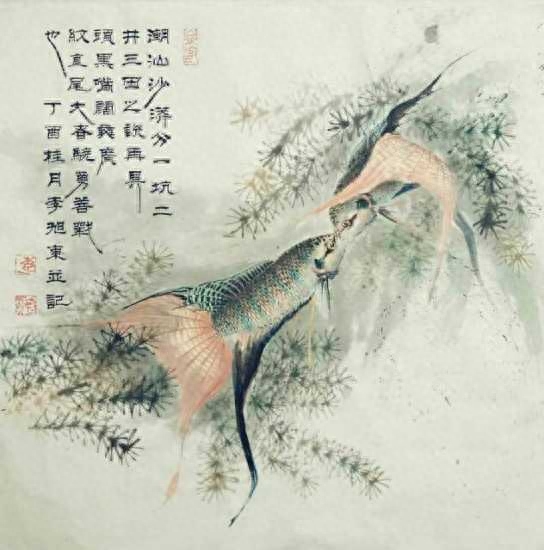 潮汕沙萍分一坑二
井三田之說再具
頭黑嘴闊廣
紋直尾大者驍勇善戰
也
丁酉桂月李旭東並記